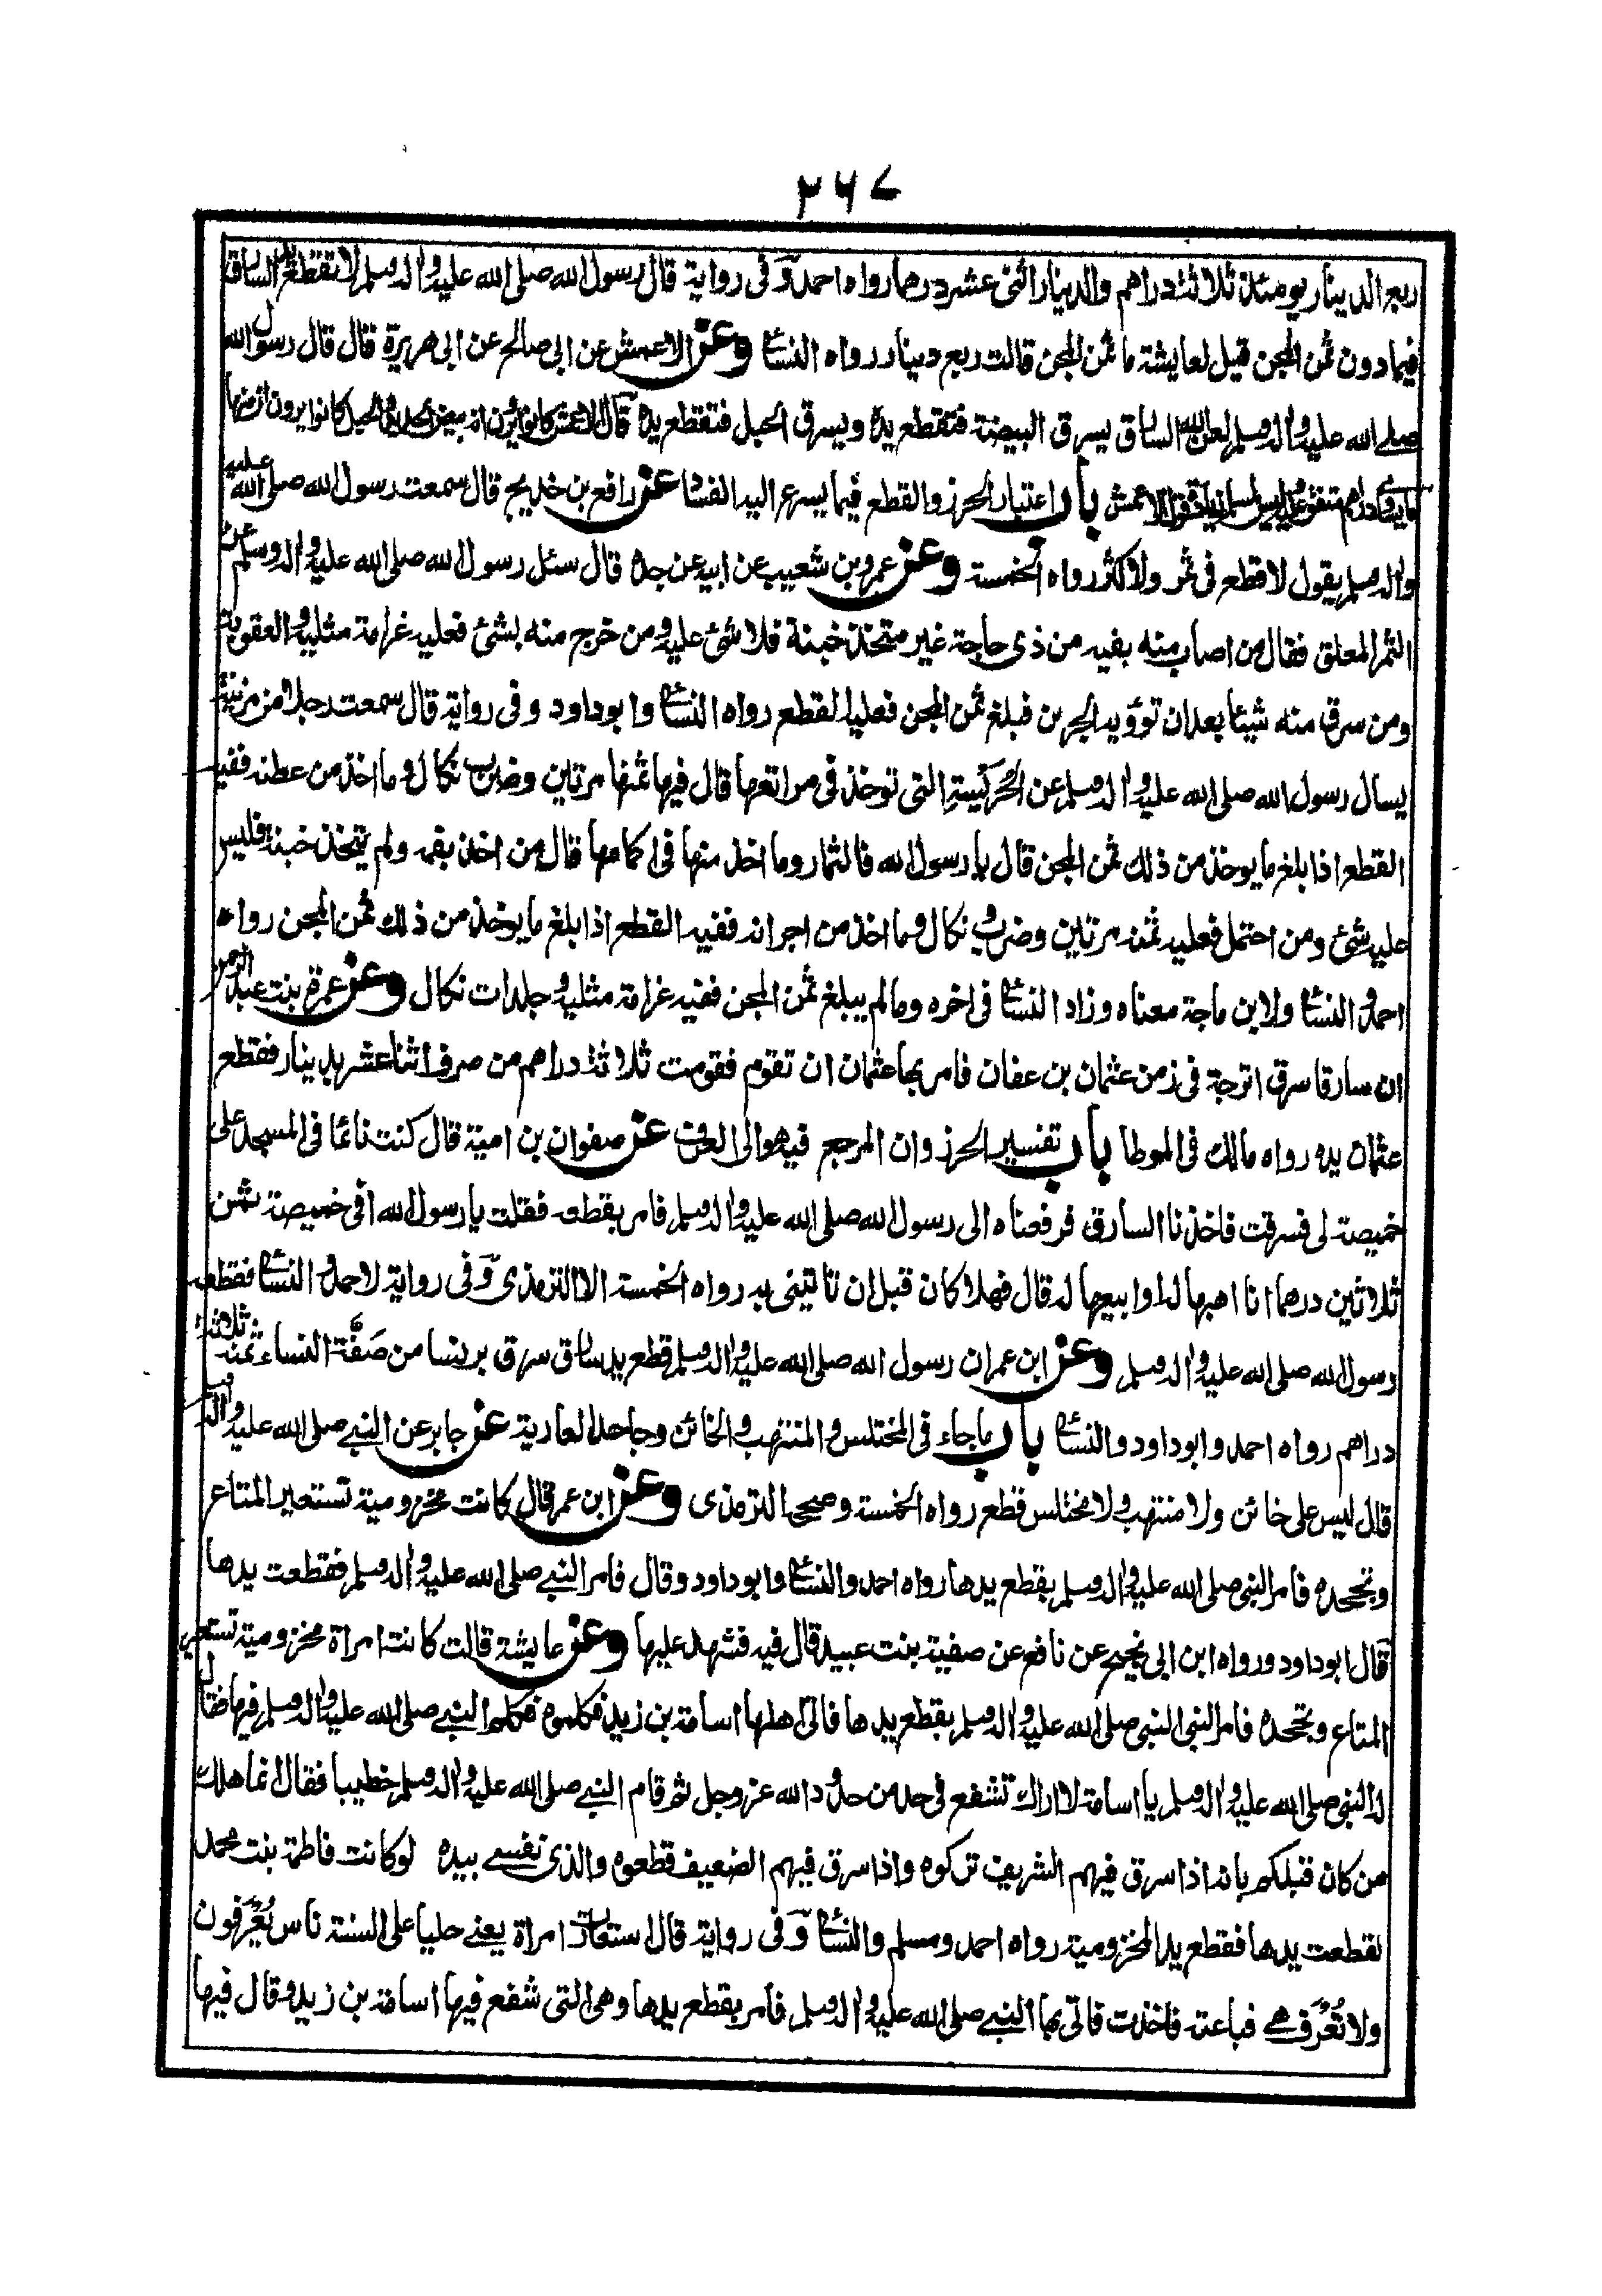 ٢٦٧
ربع الدينار يومئذ ثلاثة دراهم والدينار اثنى عشر درهما رواه احمد وفى رواية قال رسول الله صلى الله عليه واله وسلم لا تقطع يد السارق
فيما دون ثمن المجن قيل لعايشة ما ثمن المجن قالت ربع دينار رواه النسائى وعن الاعمش عن ابى صالح عن ابى هريرة قال قال رسول الله
صلى الله عليه واله وسلم لعن الله السارق يسرق البيضة فتقطع يده ويسرق الحبل فتقطع يده قال الاعمش كانوا يرون انه بيض الحديد والحبل كانوا يرون ان منها
ما يساوى دراهم متفق عليه وليس لمسلم فيه زيادة قول الاعمش باب اعتبار الحرز والقطع فيما يسرع اليه الفساد عن رافع بن خديج قال سمعت رسول الله صلى الله عليه
واله وسلم يقول لا قطع فى ثمر ولا كثر رواه الخمسة وعن عمرو بن شعيب عن ابيه عن جده قال سئل رسول الله صلى الله عليه واله وسلم عن
الثمر المعلق فقال من اصاب منه بفيه من ذى حاجة غير متخذ خبنة فلا شئ عليه ومن خرج منه بشئ فعليه غرامة مثليه والعقوبة
ومن سرق منه شيئا بعد ان تؤويه الجرين فبلغ ثمن المجن فعليه القطع رواه النسائى وابوداود وفى رواية قال سمعت رجلا من مزينة
يسال رسول الله صلى الله عليه واله وسلم عن الحريسة التى توخذ فى مراتعها قال فيها ثمنها مرتين وضرب نكال وما اخذ من عطنه ففيه
القطع اذا بلغ ما يوخذ من ذلك ثمن المجن قال يا رسول الله فالثمار وما اخذ منها فى اكمامها قال من اخذ بفمه ولم يتخذ خبنة فليس
عليه شئ ومن احتمل فعليه ثمنه مرتين وضرب نكال وما اخذ من اجرانه ففيه القطع اذا بلغ ما يوخذ من ذلك ثمن المجن رواه
احمد والنسائى ولابن ماجة معناه وزاد النسائى فى اخره وما لم يبلغ ثمن المجن ففيه غرامة مثليه وجلدات نكال وعن عمرة بنت عبد الرحمن
ان سارقا سرق اترجة فى زمن عثمان بن عفان فامر بها عثمان ان تقوم فقومت ثلاثة دراهم من صرف اثنا عشر بدينار فقطع
عثمان يده رواه مالك فى الموطا باب تفسير الحرز وان المرجع فيه هو الى العرف عن صفوان بن امية قال كنت نائما فى المسجد على
خميصة لى فسرقت فاخذنا السارق فرفعناه الى رسول الله صلى الله عليه واله وسلم فامر بقطعه فقلت يا رسول الله افى خميصة ثمن
ثلاثين درهما انا اهبها له او ابيعها له قال فهلا كان قبل ان تاتينى به رواه الخمسة الا الترمذى وفى رواية لاحمد والنسائى فقطعه
رسول الله صلى الله عليه واله وسلم وعن ابن عمر ان رسول الله صلى الله عليه واله وسلم قطع يد سارق سرق برنسا من صفة النساء ثمنه ثلاثة
دراهم رواه احمد وابوداود والنسائى باب ما جاء فى المختلس والمنتهب والخائن وجاحد العارية عن جابر عن النبى صلى الله عليه واله وسلم
قال ليس على خائن ولا منتهب ولا مختلس قطع رواه الخمسة وصححه الترمذى وعن ابن عمر قال كانت مخزومية تستعير المتاع
وتجحده فامر النبى صلى الله عليه واله وسلم بقطع يدها رواه احمد والنسائى وابوداود وقال فامر النبى صلى الله عليه واله وسلم فقطعت يدها
قال ابوداود ورواه ابن ابى نجيح عن نافع عن صفية بنت عبيد قال فيه فشهد عليها وعن عايشة قالت كانت امراة مخزومية تستعير
المتاع وتجحده فامر النبى النبى صلى الله عليه واله وسلم بقطع يدها فاتى اهلها اسامة بن زيد فكلموه فكلم النبى صلى الله عليه واله وسلم فيها فقال
له النبى صلى الله عليه واله وسلم يا اسامة لا اراك تشفع فى حد من حدود الله عز وجل ثم قام النبى صلى الله عليه واله وسلم خطيبا فقال انما هلك
من كان قبلكم بانه اذا سرق فيهم الشريف تركوه واذا سرق فيهم الضعيف قطعوه والذى نفسى بيده لو كانت فاطمة بنت محمد
لقطعت يدها فقطع يد المخزومية رواه احمد ومسلم والنسائى وفى رواية قال استعارت امراة يعنى حليا على السنة ناس يُعْرَفون
ولا تُعْرَف هى فباعته فاخذت فاتى بها النبى صلى الله عليه واله وسلم فامر بقطع يدها وهى التى شفع فيها اسامة بن زيد وقال فيها